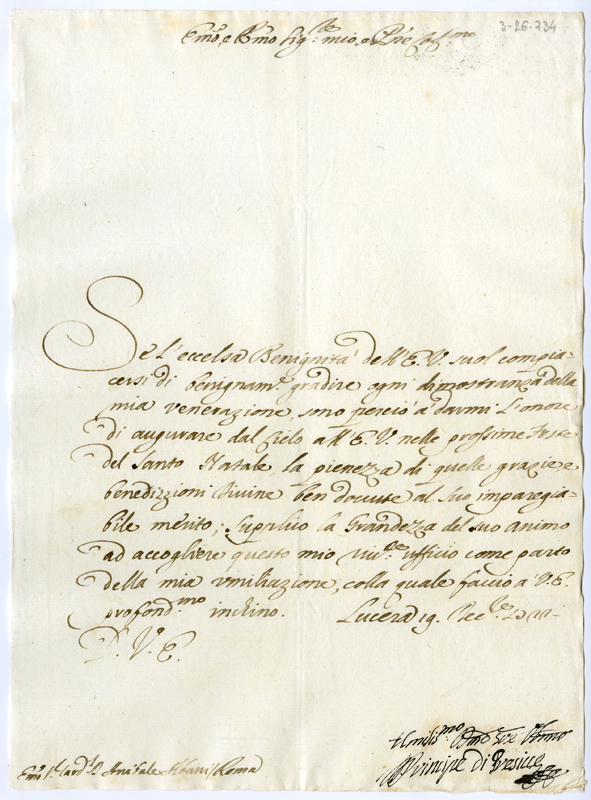 3-26-734
Emo, e Rmo Sig.re mio, e Pne
Se l'eccelsa Benignità dell'E.V. suol compia-
cersi di benignam.e gradire ogni dimostranza della
mia venerazione, sono perciò a darmi l'onore
di augurare dal Cielo all'E.V. nelle prossime Feste
del Santo Natale, la pienezza di quelle grazie e
benedizzioni Divine ben dovute al suo imparegia-
bile merito; supplico la Grandezza del suo Animo
ad accogliere questo mio ufficio come parto
della mia umiliazione, colla quale faccio a V.E.
profond.mo inchino. Lucera 19. Dec.bre
D. V. E.
Umilis.mo
Principe di
Emo S.r Card.l Anibale Albani Roma